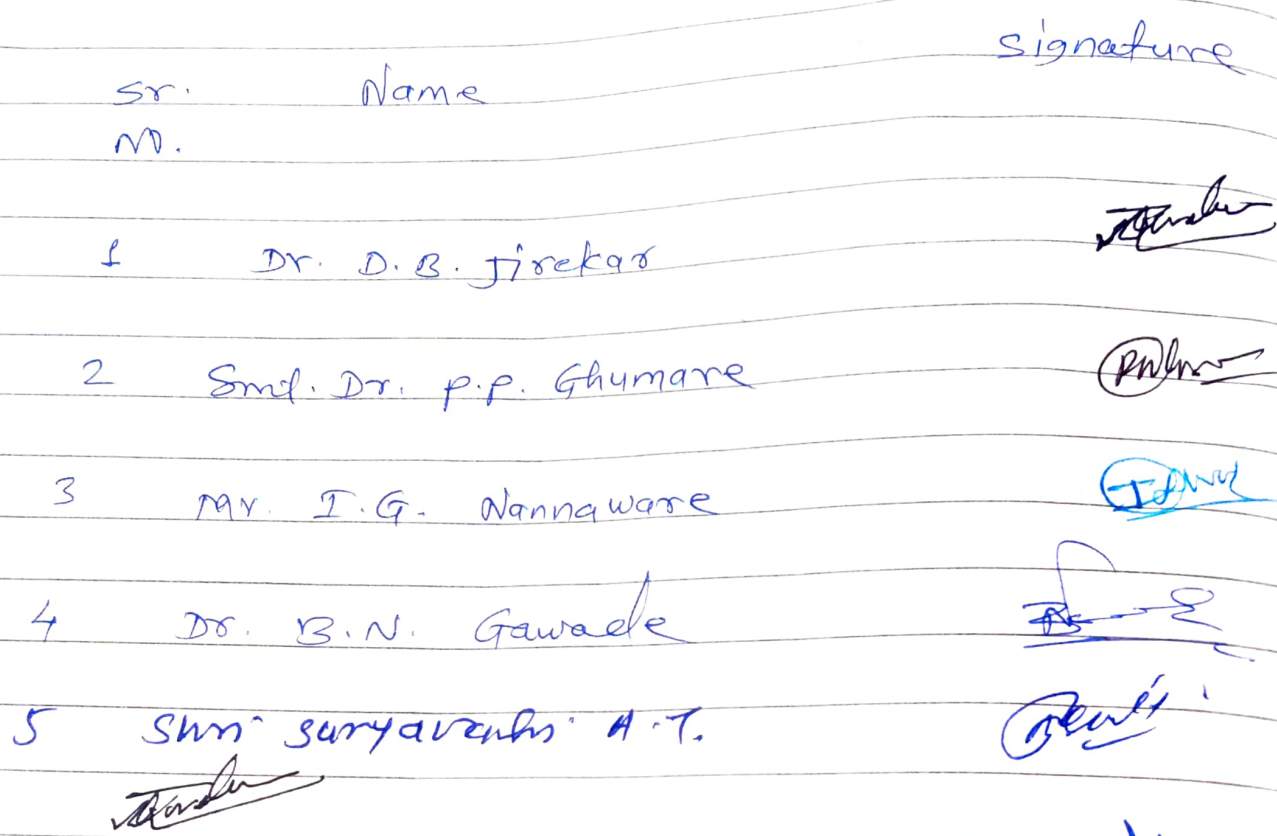 Signature
Sr. Name
No.
1 Dr. D.B. Jirekar
2 Smt. Dr. P.P. Ghumare
3 Mr. I.G. Nannaware
4 Dr. B.N. Gawade
5 Shri Suryavanshi A.T.